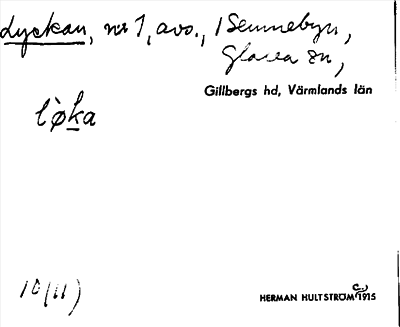 Lyckan, nr 1, avs., / Sennebyn,
Glava sn,
Gillbergs hd, Värmlands län
l`øka
10 (11)
HERMAN HULTSTRÖM 1915